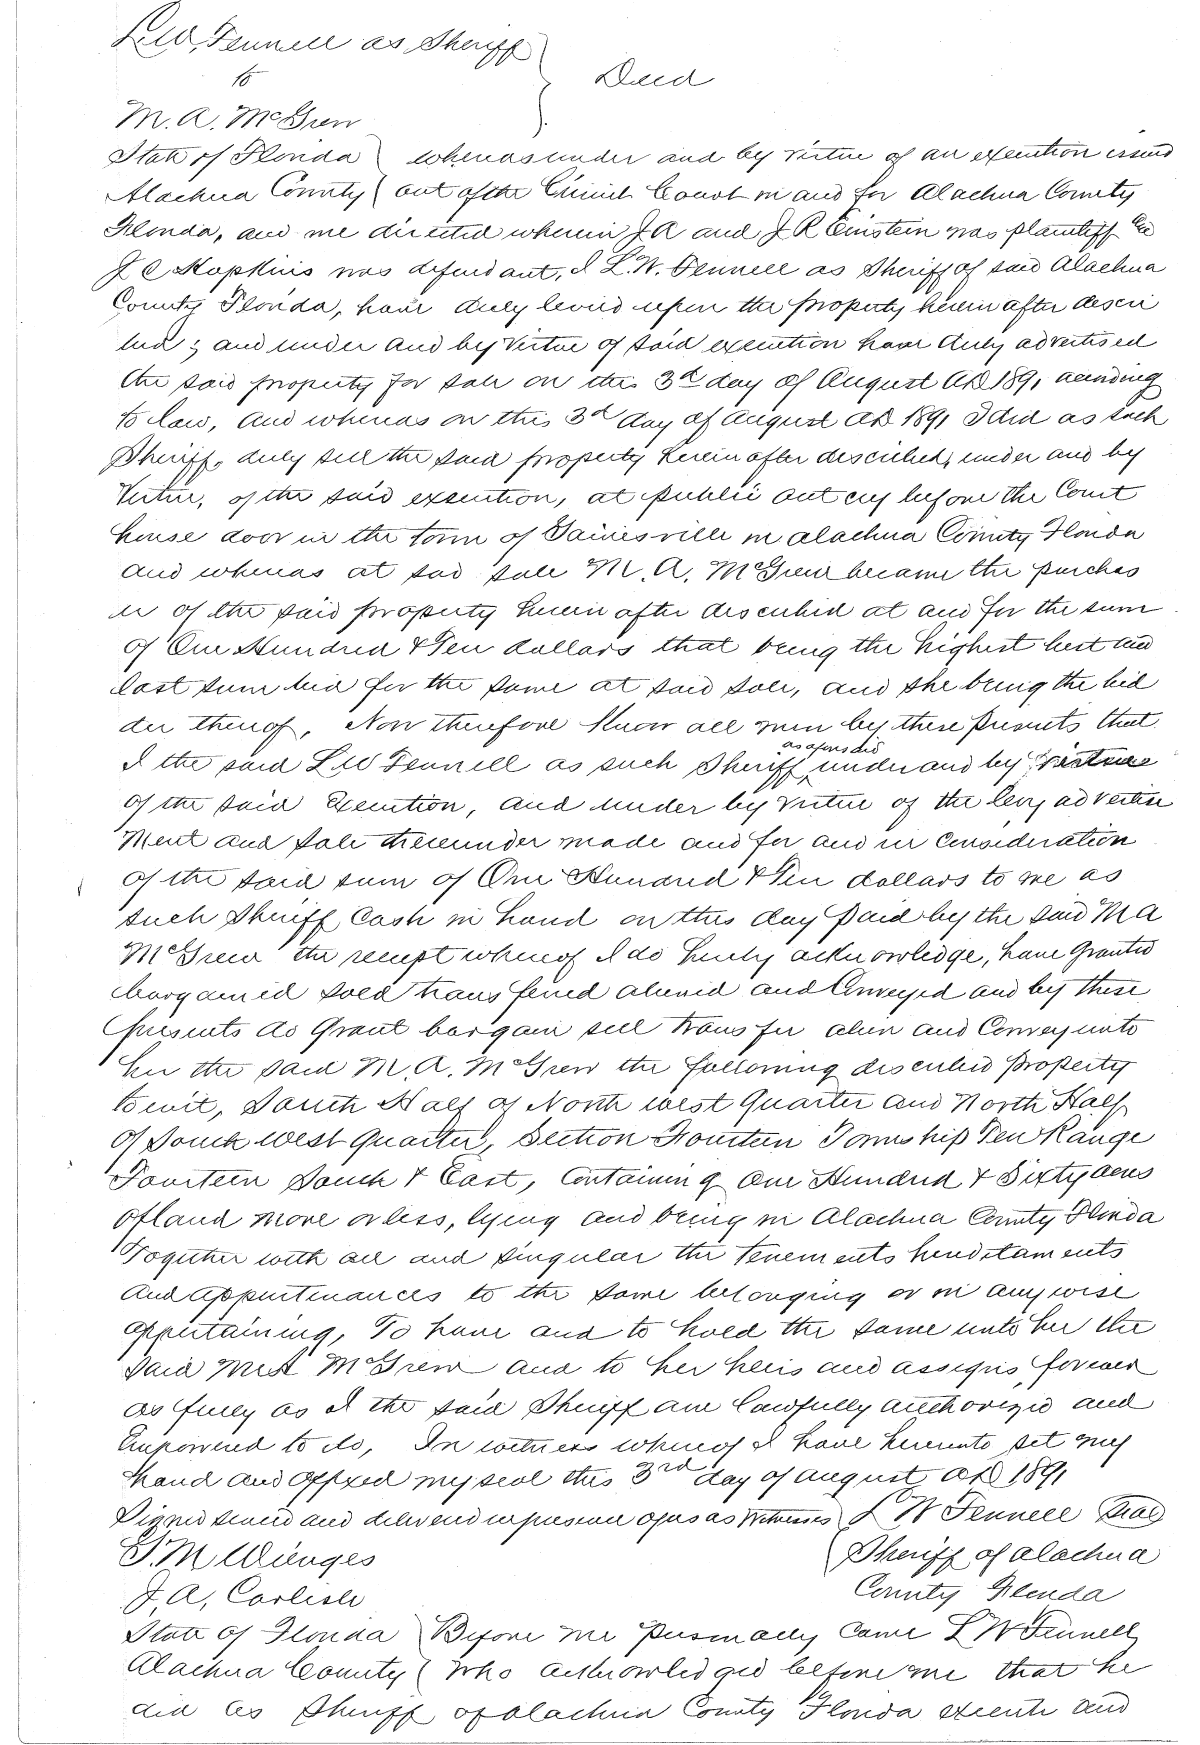 L.W. Fennell as Sheriff
to
Deed
M. A. McGrew
State of Florida whereas under and by virtue of an execution issued
Alachua County out of the Circuit Court in and for Alachua County
Florida, and me directed wherein J A and J R Einstein was plaintiff &
J C Hopkins was defendant, I L. W. Fennell as Sheriff of said Alachua
County Florida, have duly levied upon the property herein after descri
bed; and under and by virtue of said execution have duly advertised
the said property for sale on this 3d day of August AD 1891 according
to law, and whereas on this 3d day of August AD 1891 I did as such
Sheriff, duly sell the said property herein after described, under and by
virtue, of the said execution, at public out cry before the Court
house door in the town of Gainesville in Alachua County Florida
and whereas at sad sale M. A. McGrew became the purchas
er of the said property herein after described at and for the sum
of One Hundred & Ten dollars that being the highest best and
last sum bid for the same at said sale, and she being the bid
der thereof, Now therefore Know all men by these presents that
I the said L W Fennell as such Sheriff as aforesaid under and by virtue
of the said Execution, and under by virtue of the levy advertise
ment and sale thereunder made and for and in consideration
of the said sum of One Hundred & Ten dollars to me as
such Sheriff Cash in hand on this day paid by the said M A
McGrew the receipt whereof I do hereby acknowledge, have Granted
bargained sold transferred aliened and Conveyed and by these
presents do Grant bargain sell transfer alien and Convey unto
her the said M. A. McGrew the following described property
to wit, South Half of North west Quarter and North Half
of South west Quarter, Section Fourteen Township Ten Range
Fourteen South & East, Containing One Hundred & Sixty acres
of land more or less, lying and being in Alachua County Florida
Together with all and singular the tenements hereditaments
and appurtenances to the same belonging or in any wise
appertaining, To have and to hold the same unto her the
said M A McGrew and to her heirs and assigns forever
as fully as I the said Sheriff am lawfully authorized and
Empowered to do, In witness whereof I have hereunto set my
hand and affixed my seal this 3rd day of august AD 1891
Signed sealed and delivered in presence of us as Witnesses L W Fennell Seal
S. M. Wienges Sheriff of Alachua
J. A. Carlisle County Florida
State of Florida Before me personally came L W Fennell
Alachua County who acknowledged before me that he
did as Sheriff of Alachua County Florida execute and